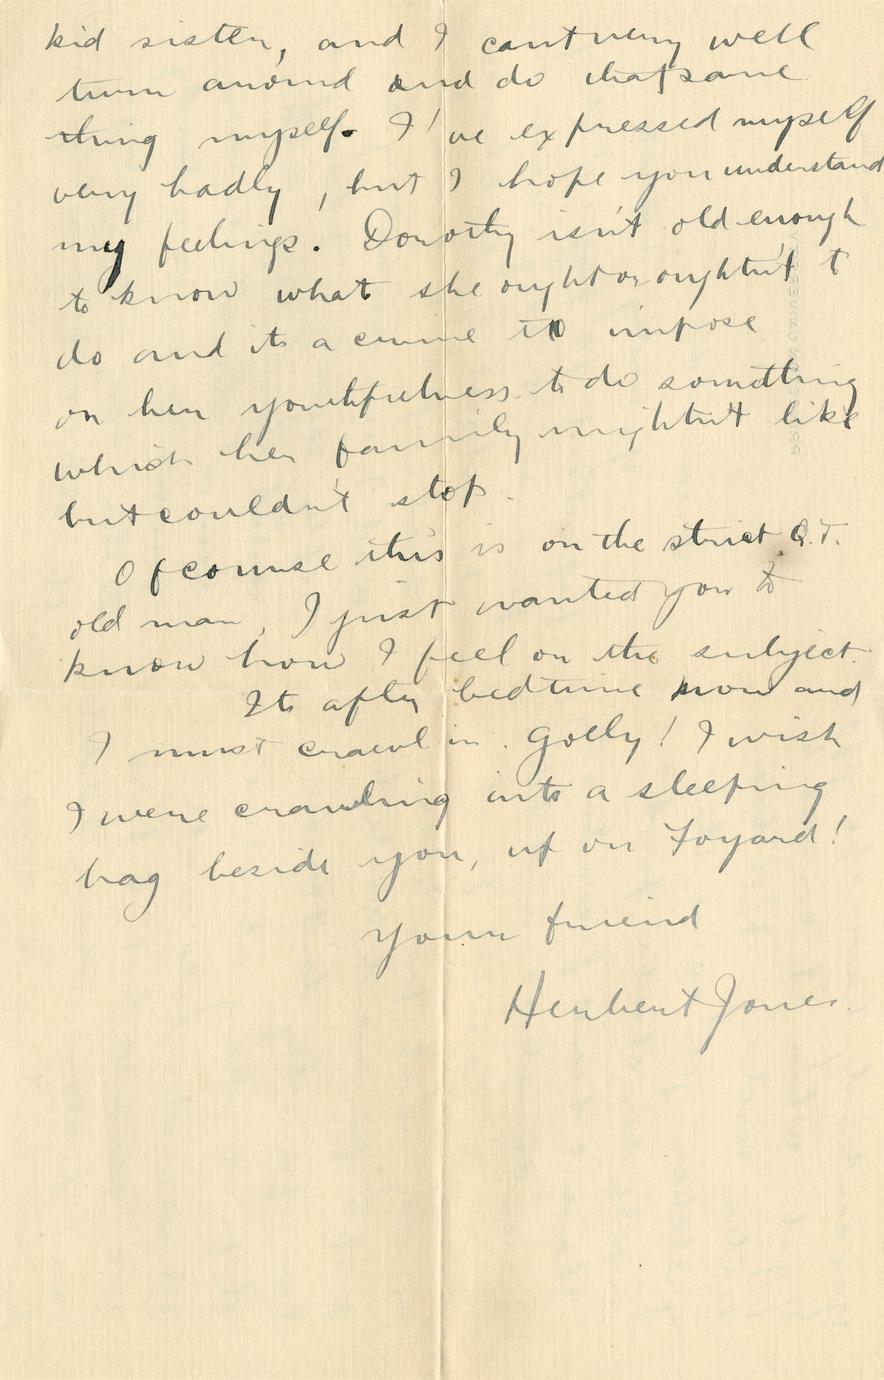 kid sister, and I cant very well
turn around and do that same
thing myself. I've expressed myself
very badly, but I hope you understand
my feelings. Dorothy isn't old enough
to know what she ought or oughtn't t
do and its a crime to impose
on her youthfulness to do something
which her family mightn't like
but couldn't stop.
Of course this is on the strict Q.T.
old man, I just wanted you to
know how I feel on the subject.
Its after bedtime now and
I must crawl in. Golly! I wish
I were crawling into a sleeping
bag beside you, up on
your friend
Herbert Jones.